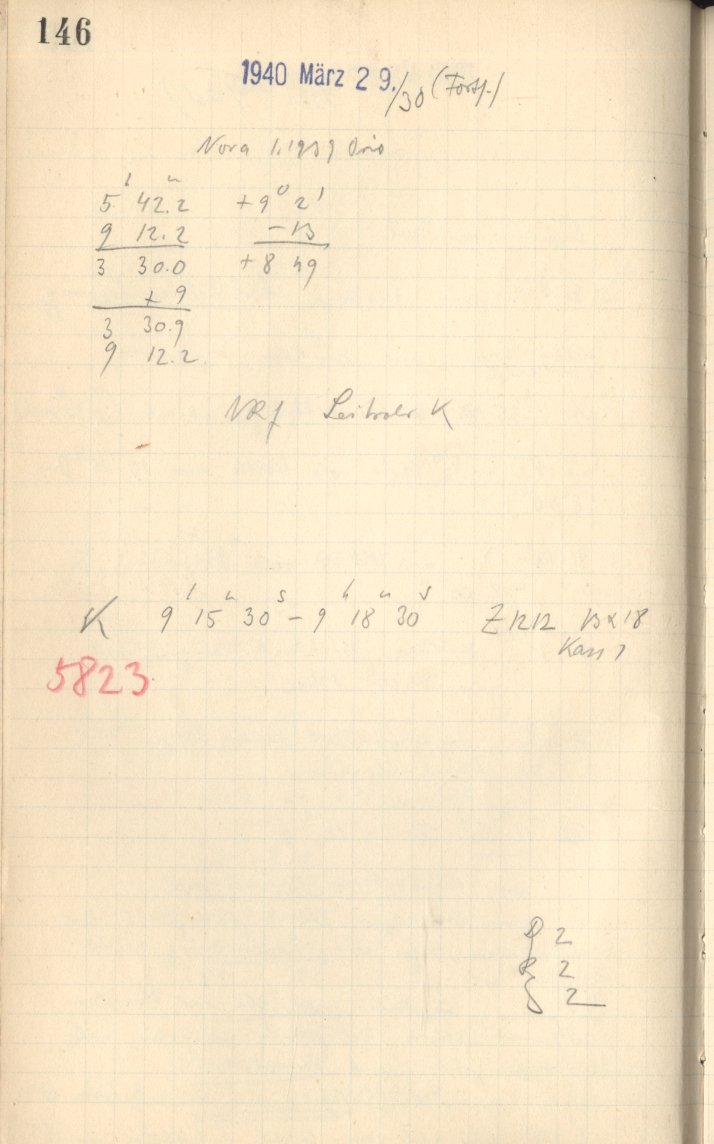 146
1940 März 29./30 (Forts.)
Nova 1.1939 Orio
h m
5 42.2 +9° 2'
9 12.2 -13
3 30.0 +8 49
+ 9
3 30.9
9 12.2
K
K 9h 15m 30s - 9h 18m 30s Z1212 13x18
Kass 1
5823
D 2
R 2
S 2